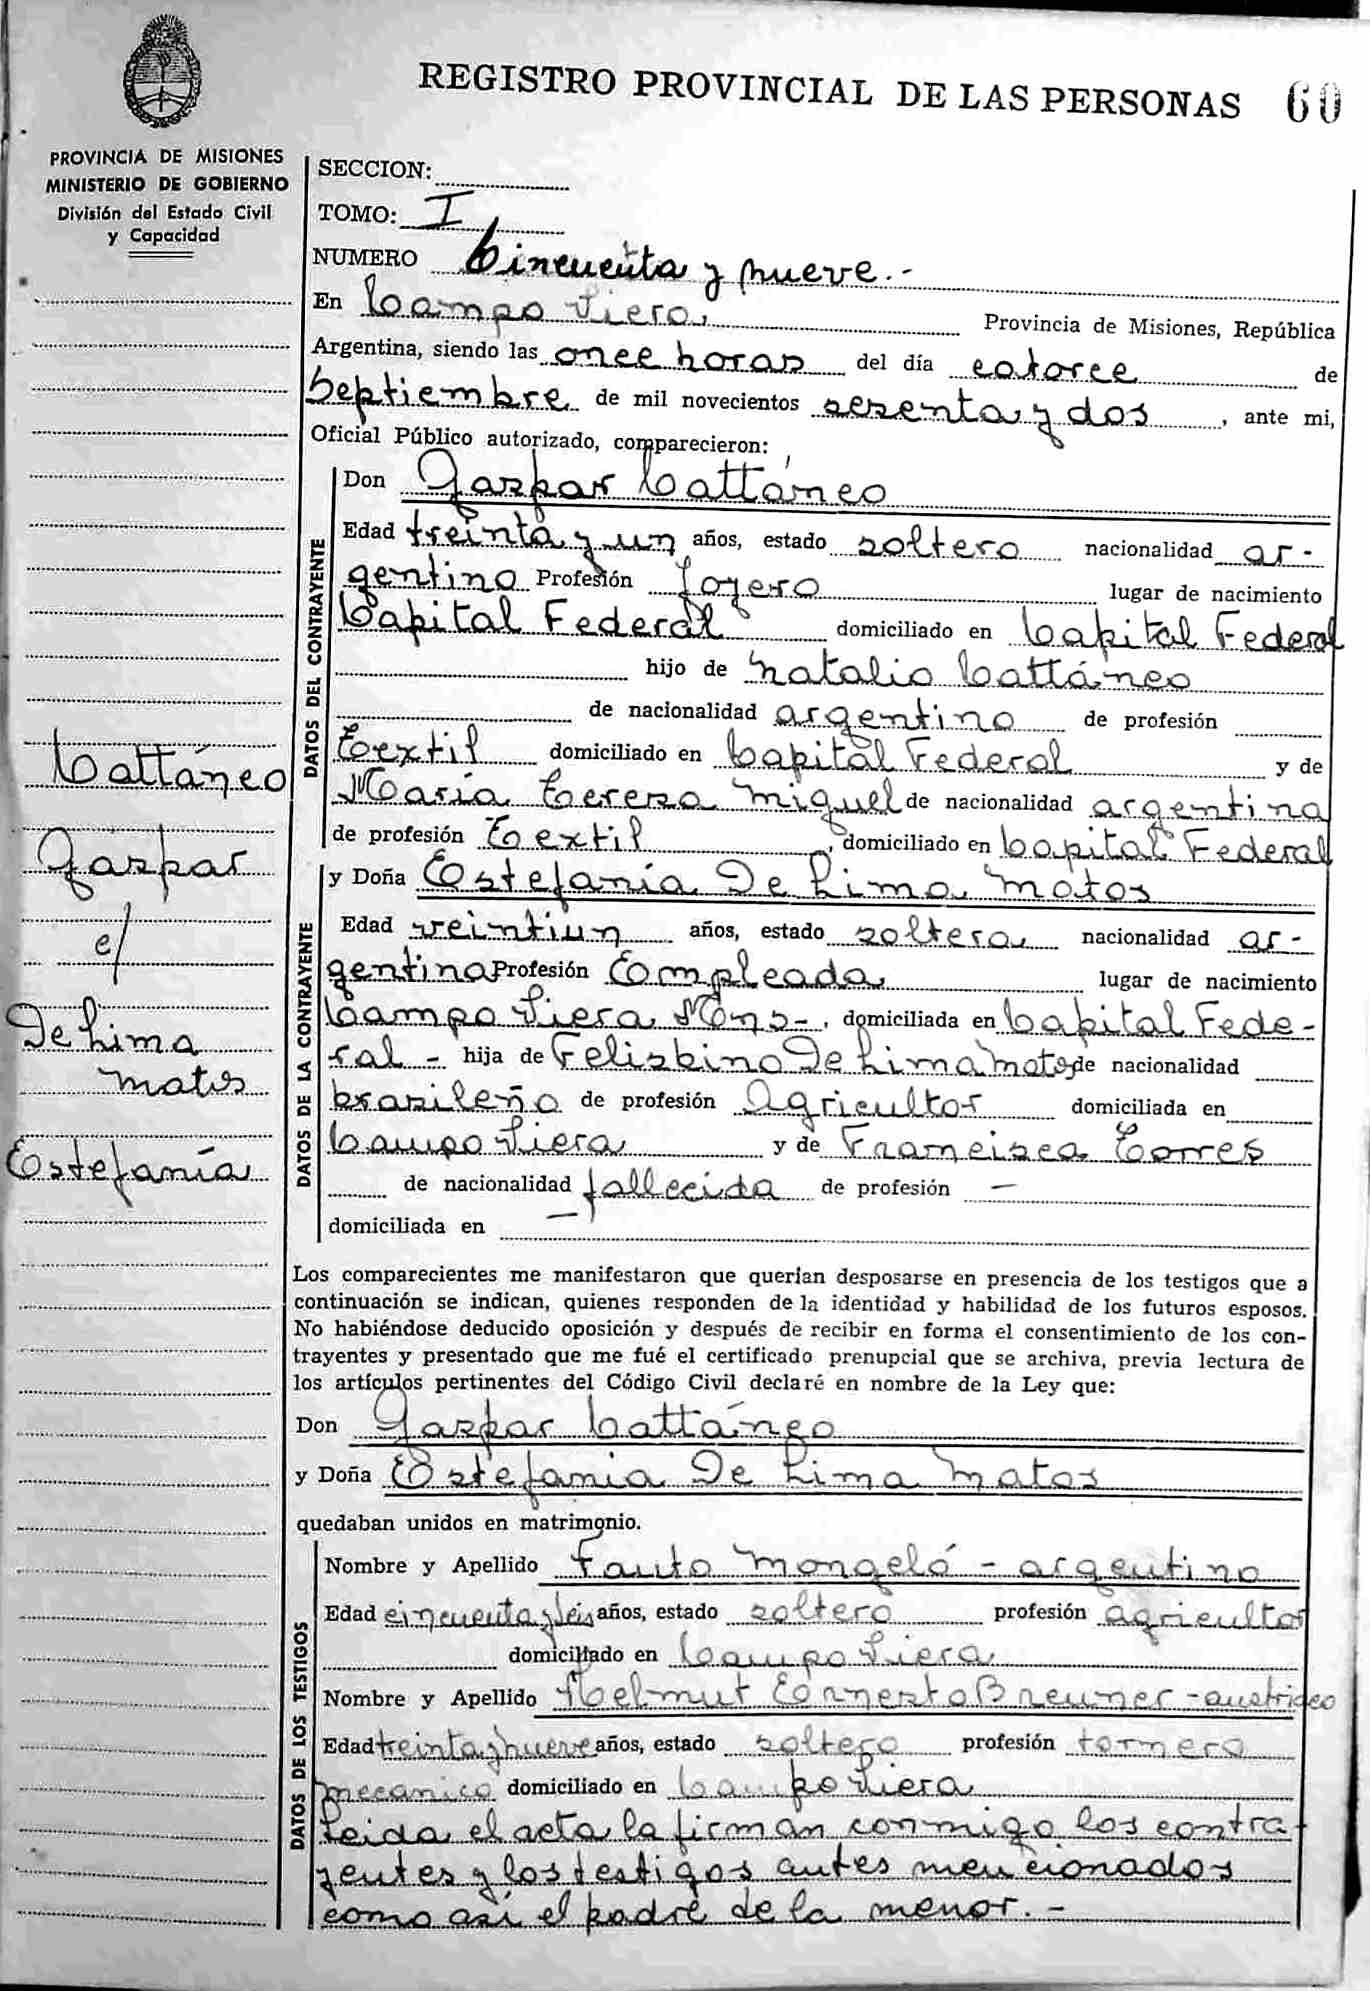 REGISTRO PROVINCIAL DE LAS PERSONAS 60
PROVINCIA DE MISIONES
MINISTERIO DE GOBIERNO
División del Estado Civil
y Capacidad
Cattáneo
Gaspar
e/
De Lima
Matos
Estefanía
SECCION:
TOMO: I
NUMERO Cincuenta y nueve.-
En Campo Viera, Provincia de Misiones, República
Argentina, siendo las once horas del día catorce de
Septiembre de mil novecientos sesenta y dos, ante mi,
Oficial Público autorizado, comparecieron:
DATOS DEL CONTRAYENTE
Don Gaspar Cattáneo
Edad treinta y un años, estado soltero nacionalidad ar-
gentino Profesión Joyero lugar de nacimiento
Capital Federal domiciliado en Capital Federal
hijo de Natalio Cattáneo
de nacionalidad argentino de profesión
Textil domiciliado en Capital Federal y de
María Teresa Miguel de nacionalidad argentina
de profesión Textil, domiciliado en Capital Federal
DATOS DE LA CONTRAYENTE
y Doña Estefanía De Lima Matos
Edad veintiun años, estado soltera nacionalidad ar-
gentina Profesión Empleada lugar de nacimiento
Campo Viera Mns-, domiciliada en Capital Fede-
ral - hija de Felisbino De Lima Matos de nacionalidad
brasileño de profesión Agricultor domiciliada en
Campo Viera y de Francisca Torres
de nacionalidad fallecida de profesión —
domiciliada en —
Los comparecientes me manifestaron que querían desposarse en presencia de los testigos que a
continuación se indican, quienes responden de la identidad y habilidad de los futuros esposos.
No habiéndose deducido oposición y después de recibir en forma el consentimiento de los con-
trayentes y presentado que me fué el certificado prenupcial que se archiva, previa lectura de
los artículos pertinentes del Código Civil declaré en nombre de la Ley que:
Don Gaspar Cattáneo
y Doña Estefania De Lima Matos
quedaban unidos en matrimonio.
DATOS DE LOS TESTIGOS
Nombre y Apellido Fauto Mongeló - argentino
Edad cincuenta y seis años, estado soltero profesión agricultor
domiciliado en Campo Viera
Nombre y Apellido Helmut Ernesto Breuner - austriaco
Edad treinta y nueve años, estado soltero profesión tornero
mecanico domiciliado en Campo Viera
Leida el acta la firman conmigo los contra
yentes y los testigos antes mencionados
como asi el padre de la menor.-